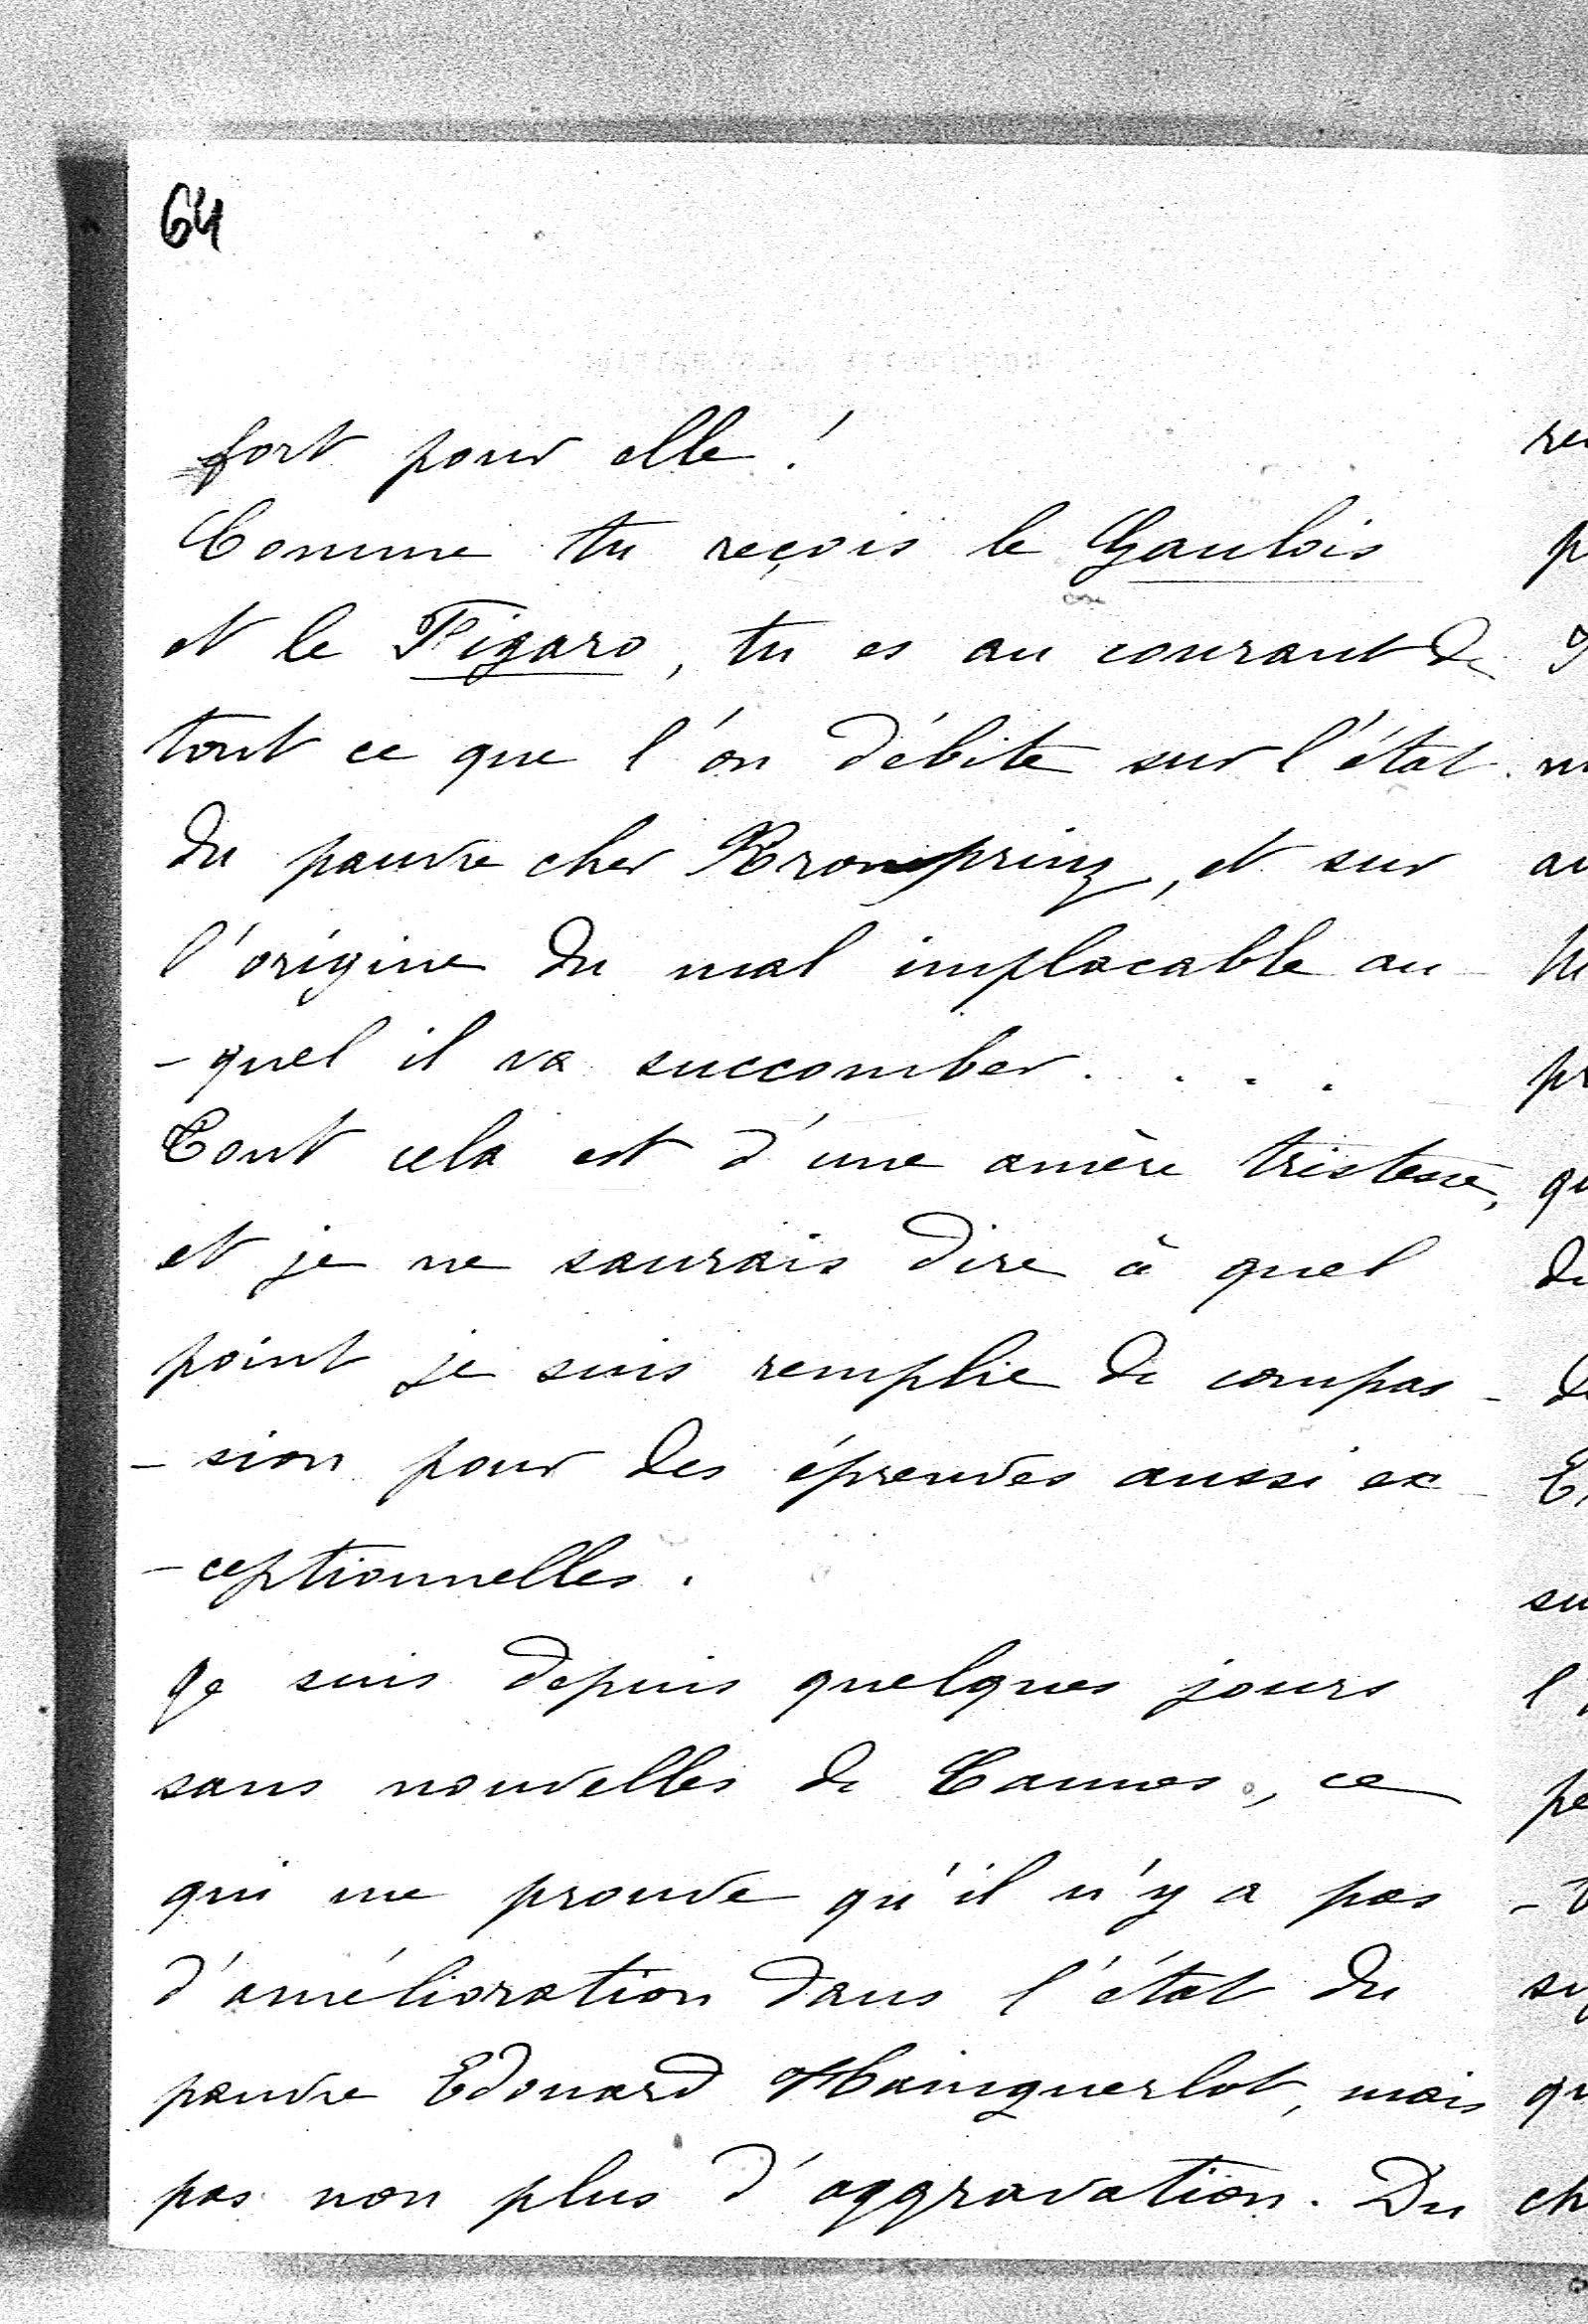 64
fort pour elle !
Comme tu reçois le Gaulois
et le Figaro, tu es au courant de
tout ce que l'on débite sur l'état
du pauvre cher Kronprinz, et sur
l'origine du mal implacable au-
-quel il va succomber. . . .
Tout cela est d'une amère tristesse,
et je ne saurais dire à quel
point je suis remplie de compas-
-sion pour des épreuves aussi ex-
-ceptionnelles.
Je suis depuis quelques jours
sans nouvelles de Cannes, ce
qui me prouve qu'il n'y a pas
d'amélioration dans l'état du
pauvre Edouard Hainguerlot, mais
pas non plus d'aggravation. Du